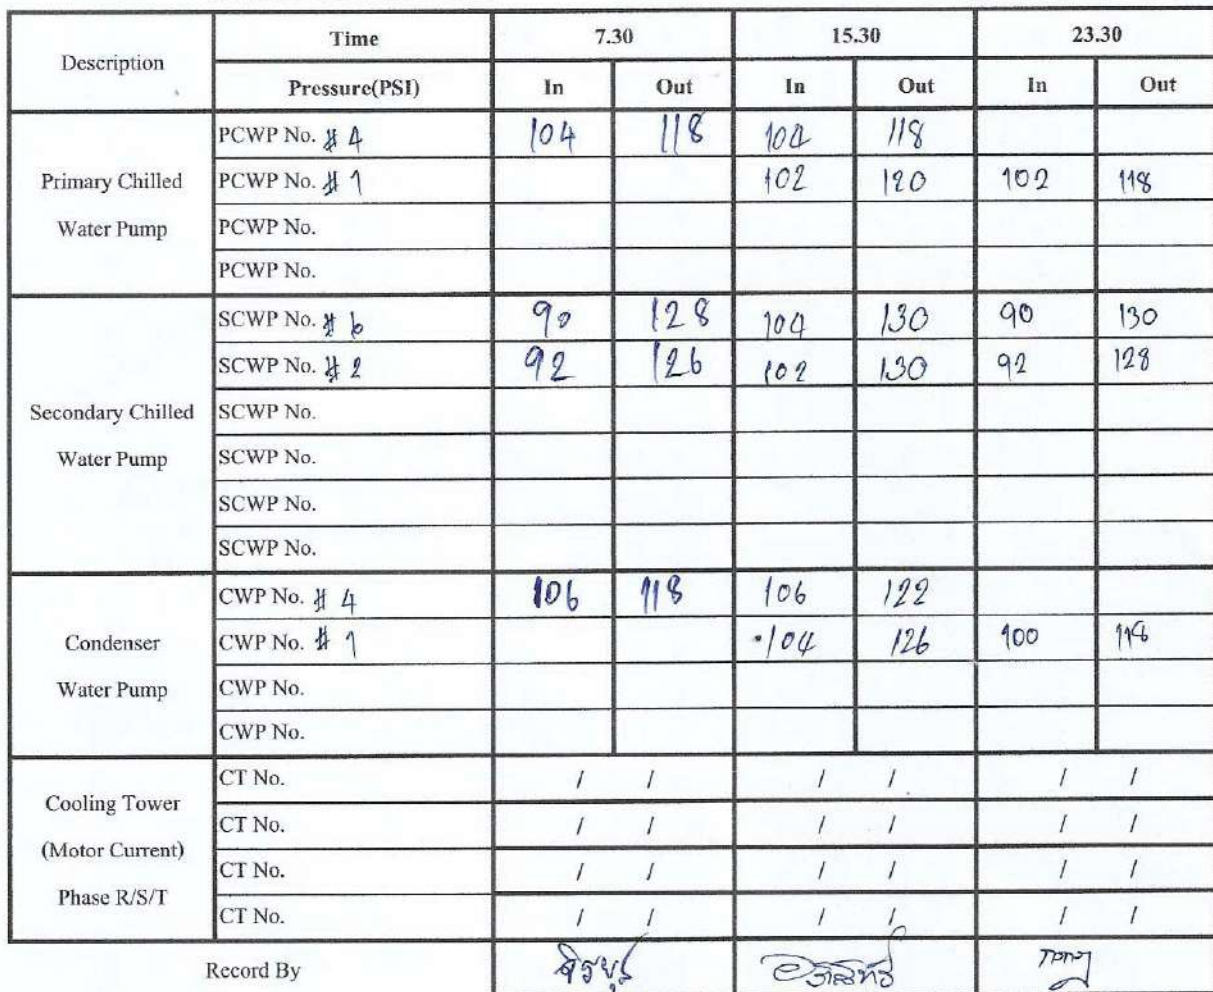 Description Time 7.30 15.30 23.30
Pressure(PSI) In Out In Out In Out
Primary Chilled Water Pump
PCWP No. # 4 104 118 104 118
PCWP No. # 1 102 120 102 118
PCWP No.
PCWP No.
Secondary Chilled Water Pump
SCWP No. # 6 90 128 104 130 90 130
SCWP No. # 2 92 126 102 130 92 128
SCWP No.
SCWP No.
SCWP No.
SCWP No.
Condenser Water Pump
CWP No. # 4 106 118 106 122
CWP No. # 1 104 126 100 118
CWP No.
CWP No.
Cooling Tower (Motor Current) Phase R/S/T
CT No. / / / / / /
CT No. / / / / / /
CT No. / / / / / /
CT No. / / / / / /
Record By